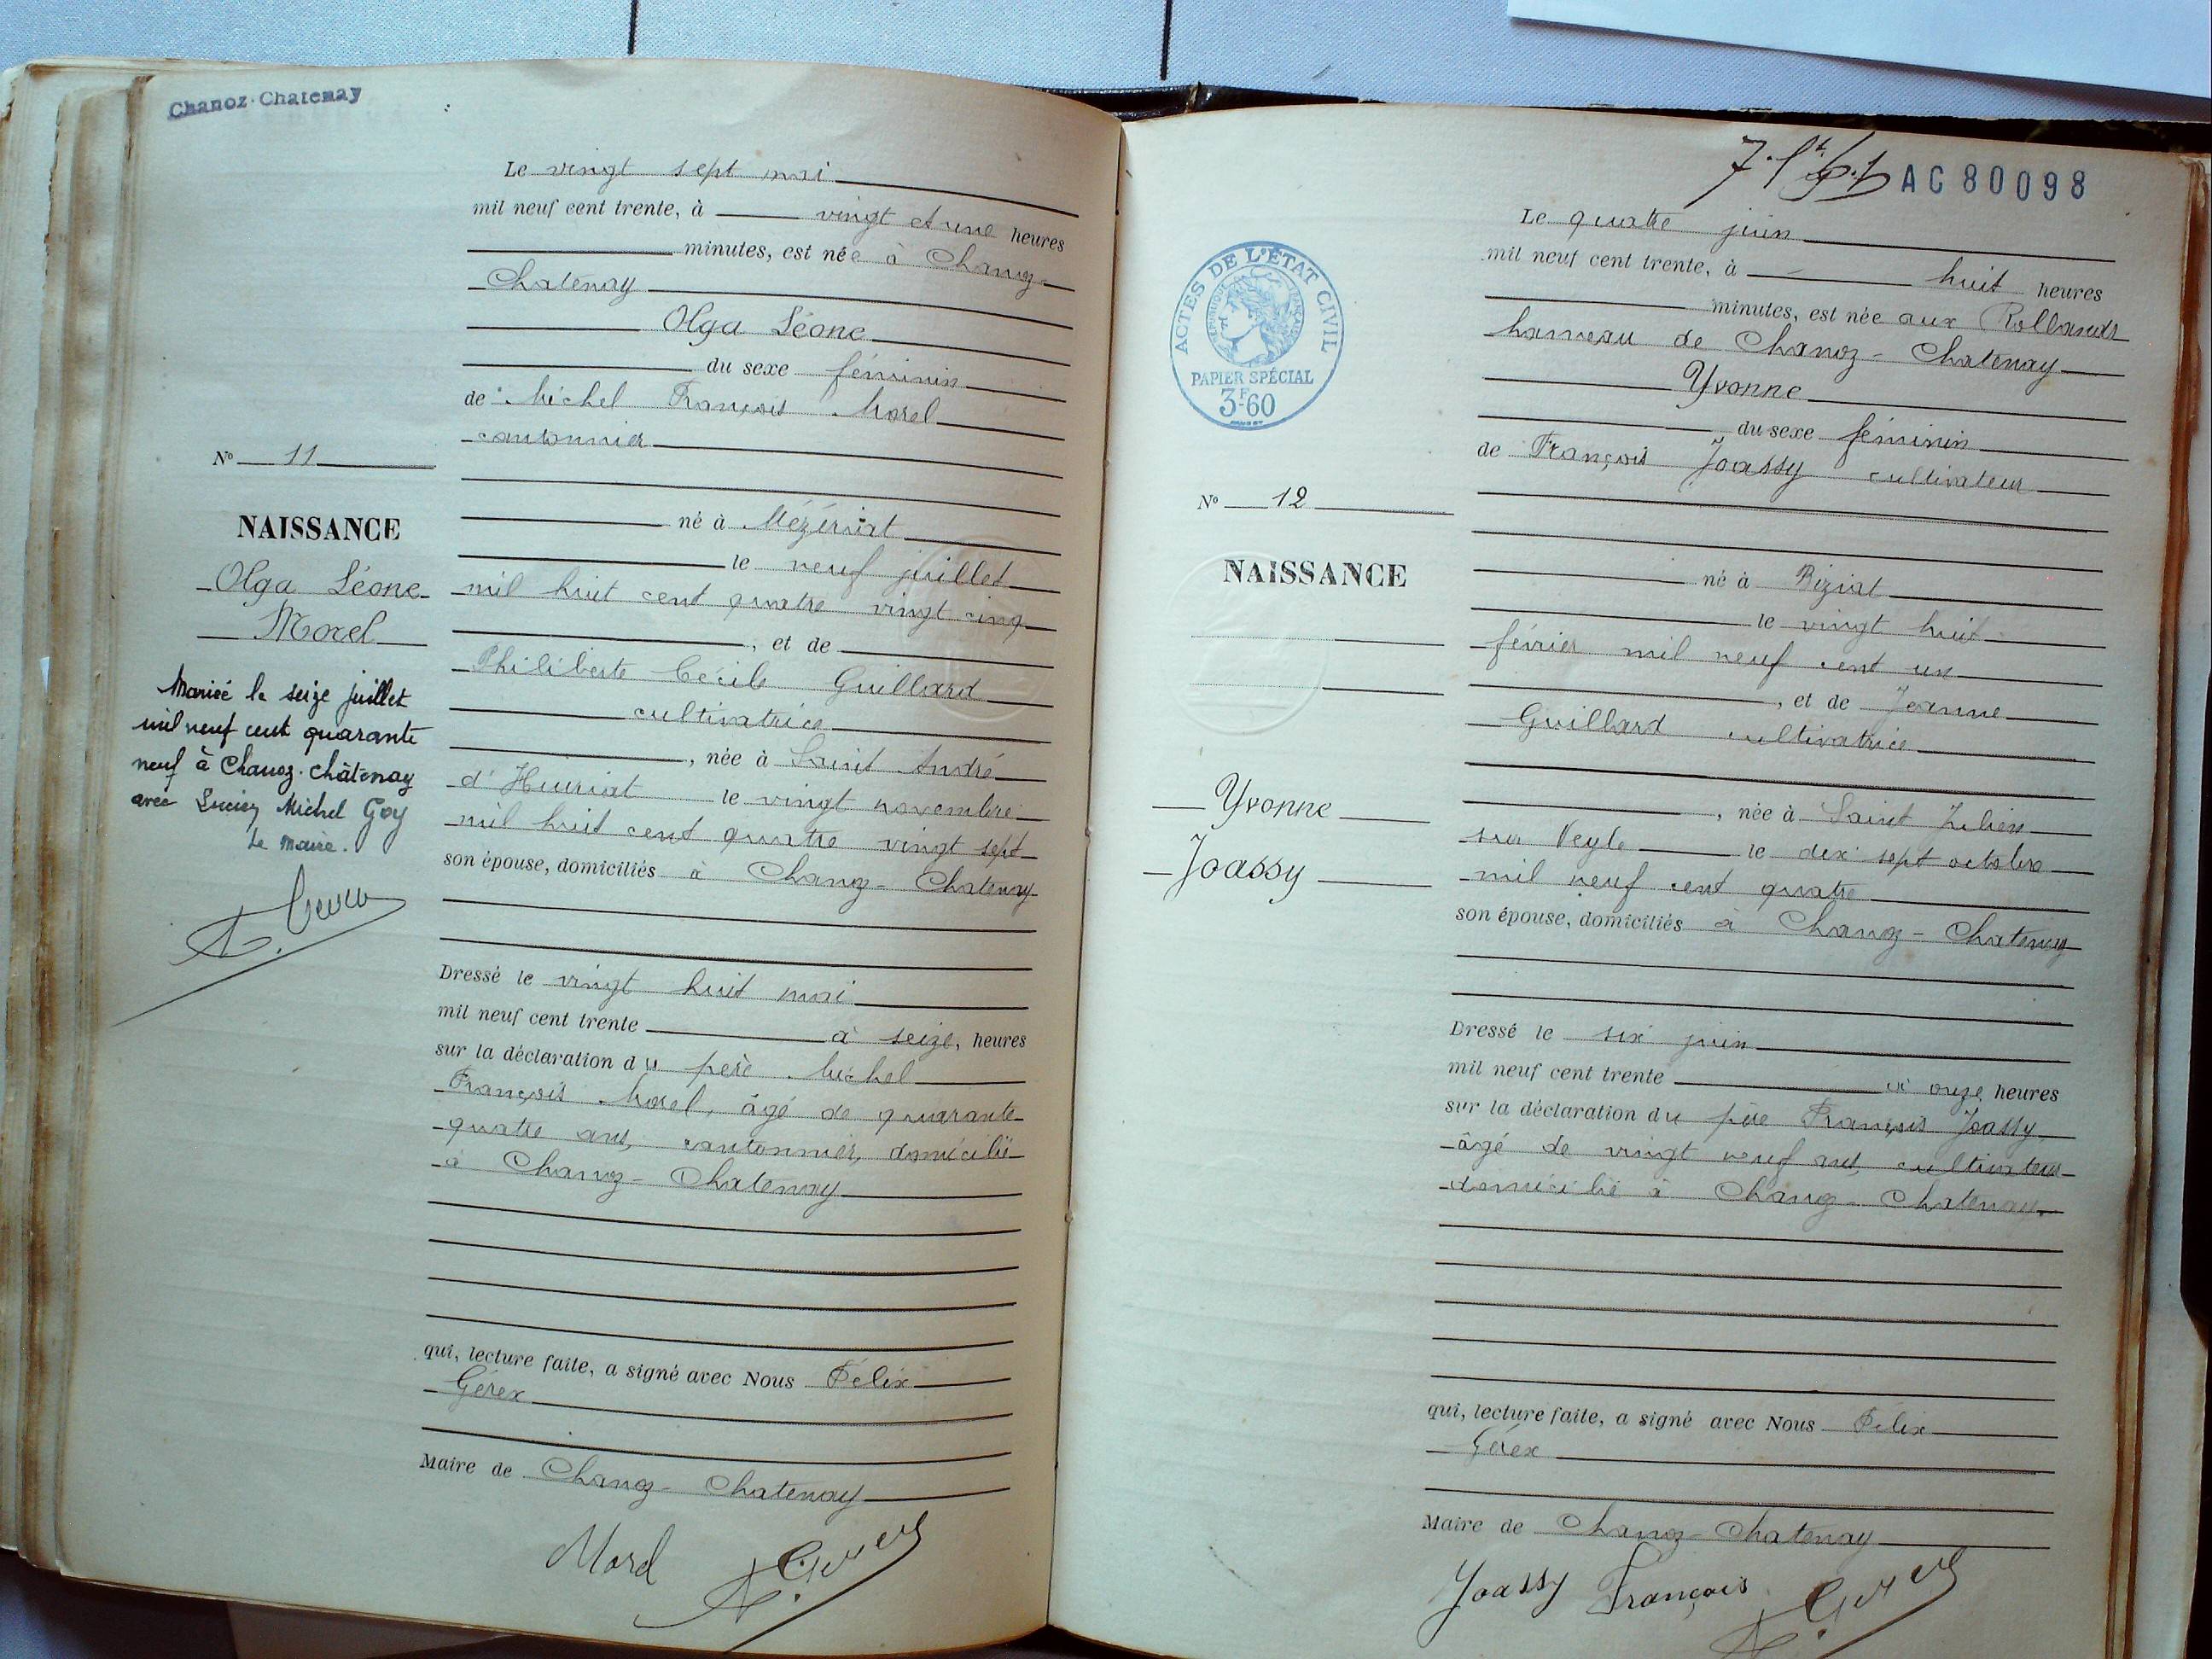 Chanoz-Chatenay
Le vingt sept mai
mil neuf cent trente, à vingt et une heures
minutes, est née à Chanoz-
Chatenay
Olga Léone
du sexe féminin
de Michel François Morel
cantonnier
né à Mézériat
le neuf juillet
mil huit cent quatre vingt cinq
, et de
Philiberte Cécile Guillard
cultivatrice
, née à Saint André
d'Huiriat le vingt novembre
mil huit cent quatre vingt sept
son épouse, domiciliés à Chanoz-Chatenay
Dressé le vingt huit mai
mil neuf cent trente à seize, heures
sur la déclaration du père Michel
François Morel, âgé de quarante
quatre ans, cantonnier, domicilié
à Chanoz-Chatenay
qui, lecture faite, a signé avec Nous Félix
Gérex
Maire de Chanoz-Chatenay
Morel
N° 11
NAISSANCE
Olga Léone
Morel
Mariée le seize juillet
mil neuf cent quarante
neuf à Chanoz-Châtenay
avec Lucien Michel Goy
Le Maire.
AC 80098
ACTES DE L'ÉTAT CIVIL
RÉPUBLIQUE FRANÇAISE
PAPIER SPÉCIAL
3F-60
Le quatre juin
mil neuf cent trente, à huit heures
minutes, est née aux Rollands
hameau de Chanoz-Chatenay
Yvonne
du sexe féminin
de François Joassy cultivateur
né à Biziat
le vingt huit
février mil neuf cent un
, et de Jeanne
Guillard cultivatrice
, née à Saint Julien
sur Veyle le dix sept octobre
mil neuf cent quatre
son épouse, domiciliés à Chanoz-Chatenay
Dressé le six juin
mil neuf cent trente à onze heures
sur la déclaration du père François Joassy
âgé de vingt neuf ans, cultivateur
domicilié à Chanoz-Chatenay.
qui, lecture faite, a signé avec Nous Félix
Gérex
Maire de Chanoz-Chatenay
Joassy François
N° 12
NAISSANCE
Yvonne
Joassy